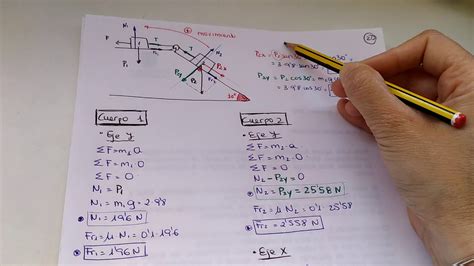 20
movimiento
N1
N2
F
T
T
P1
P2x
P2y
P2
Fr2
30°
P2x = P2 sen30° =
= 3·98 sen30° =
P2y = P2 cos30° = m2g
= 3·98 cos30° =
Cuerpo 1
• Eje y
ΣF = m2·a
ΣF = m1·0
ΣF = 0
N1 = P1
N1 = m1g = 2·9'8
N1 = 19'6 N
Fr1 = μ N1 = 0'1·19'6
Fr1 = 1'96 N
Cuerpo 2
• Eje y
ΣF = m2·a
ΣF = m2·0
ΣF = 0
N2 - P2y = 0
N2 = P2y = 25'58 N
Fr2 = μ N2 = 0'1·25'58
Fr2 = 2'558 N
• Eje X